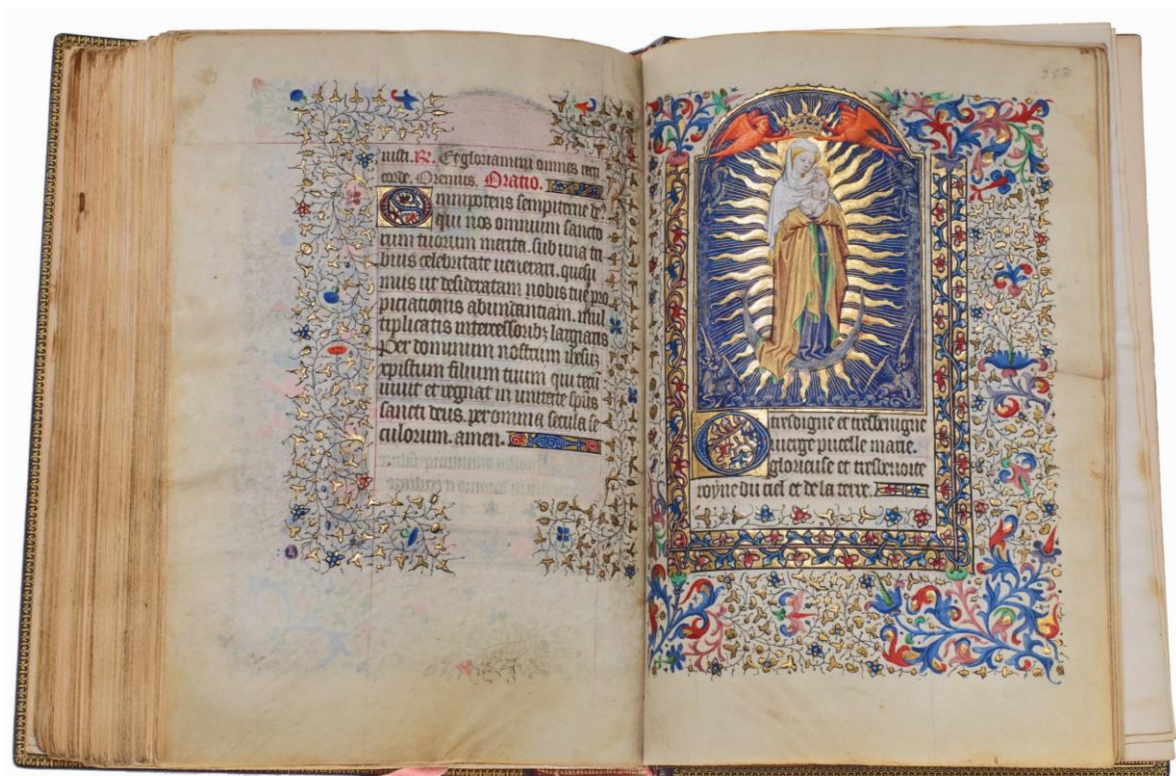 iusti. R. Et gloriamini omnes recti
corde. Oremus. Oratio.
Omnipotens sempiterne de⁹
qui nos omnium sancto
rum tuorum merita. sub una tri
buisti celebritate venerari. quesu
mus ut desideratam nobis tue pro
piciationis abundantiam. mul
tiplicatis intercessorib; largiaris
Per dominum nostrum ihesu
xpistum filium tuum qui tecu
vivit et regnat in unitate spūs
sancti deus. per omnia secula se
culorum. amen.
258
O tresdigne et tresbenigne
vierge pucelle marie.
glorieuse et
royne du ciel et de la terre.